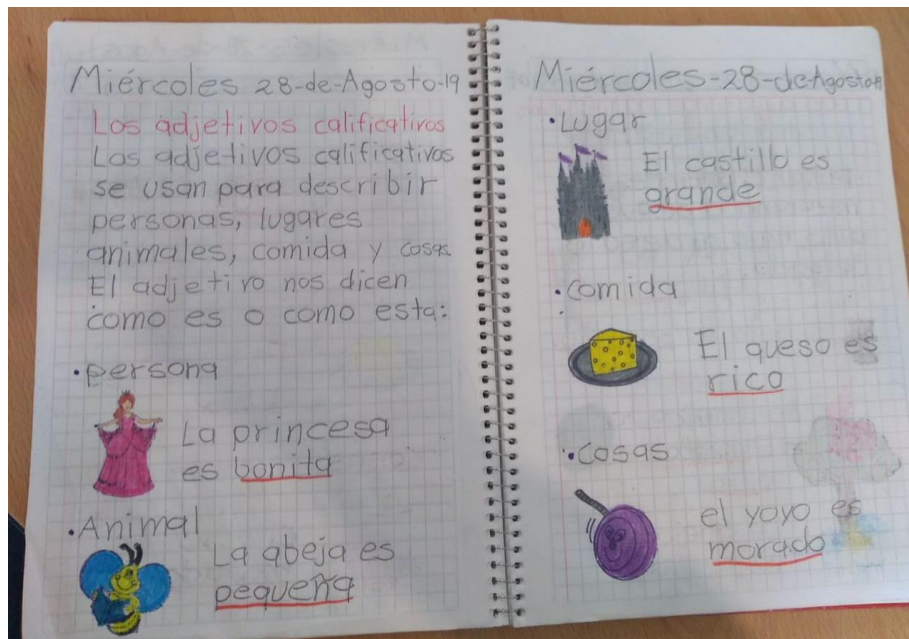 Miércoles 28-de-Agosto-19
Los adjetivos calificativos
Los adjetivos calificativos
se usan para describir
personas, lugares
animales, comida y cosas.
El adjetivo nos dicen
como es o como esta:
•persona
La princesa
es bonita
•Animal
La abeja es
pequeña
Miércoles-28-de-Agosto-19
•Lugar
El castillo es
grande
•comida
El queso es
rico
•cosas
el yoyo es
morado